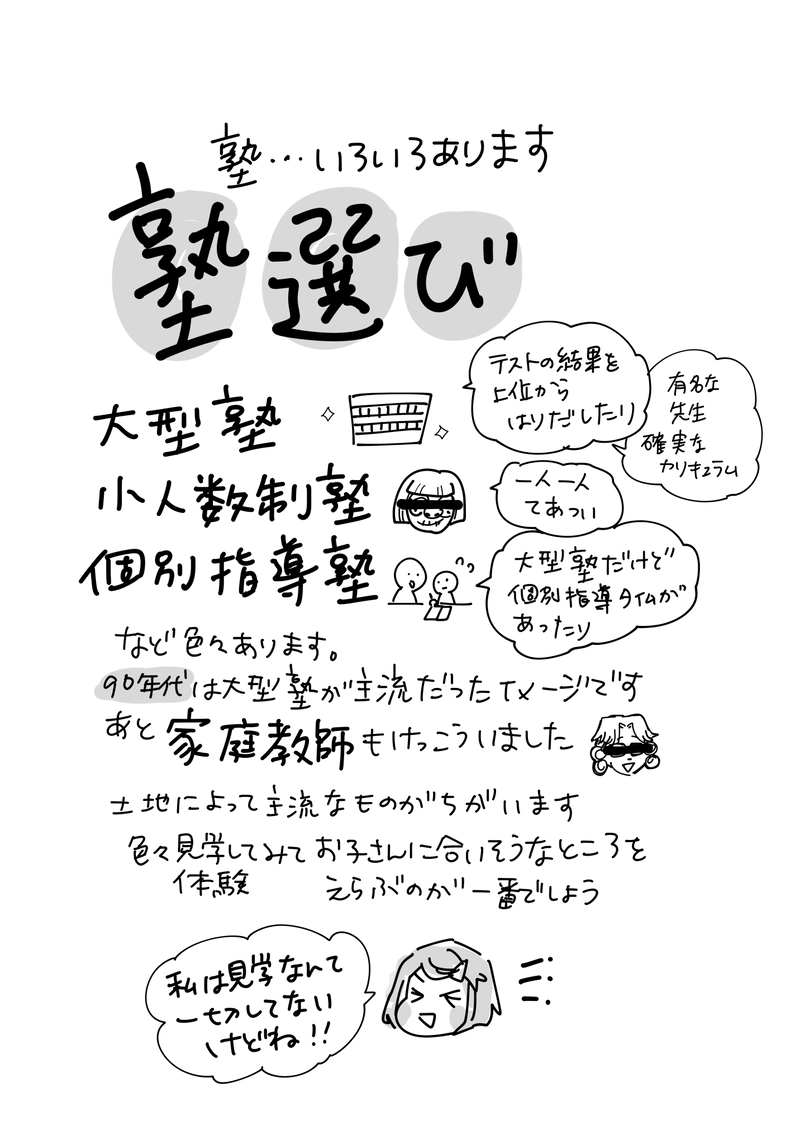 塾…いろいろあります
塾選び
大型塾
テストの結果を
上位から
はりだしたり
有名な
先生
確実な
カリキュラム
小人数制塾
一人一人
てあつい
個別指導塾
大型塾だけど
個別指導タイムが
あったり
など色々あります。
90年代は大型塾が主流だったイメージです
あと家庭教師もけっこういました
土地によって主流なものがちがいます
色々見学してみてお子さんに合いそうなところを
体験
えらぶのが一番でしょう
私は見学なんて
一切してない
けどね!!